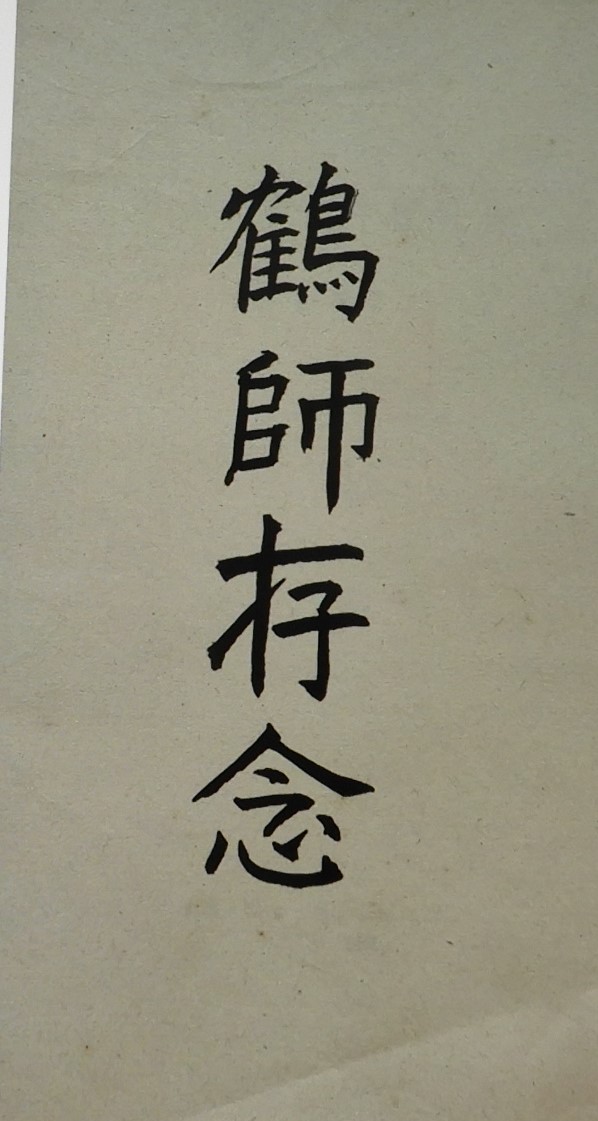 鶴師存念